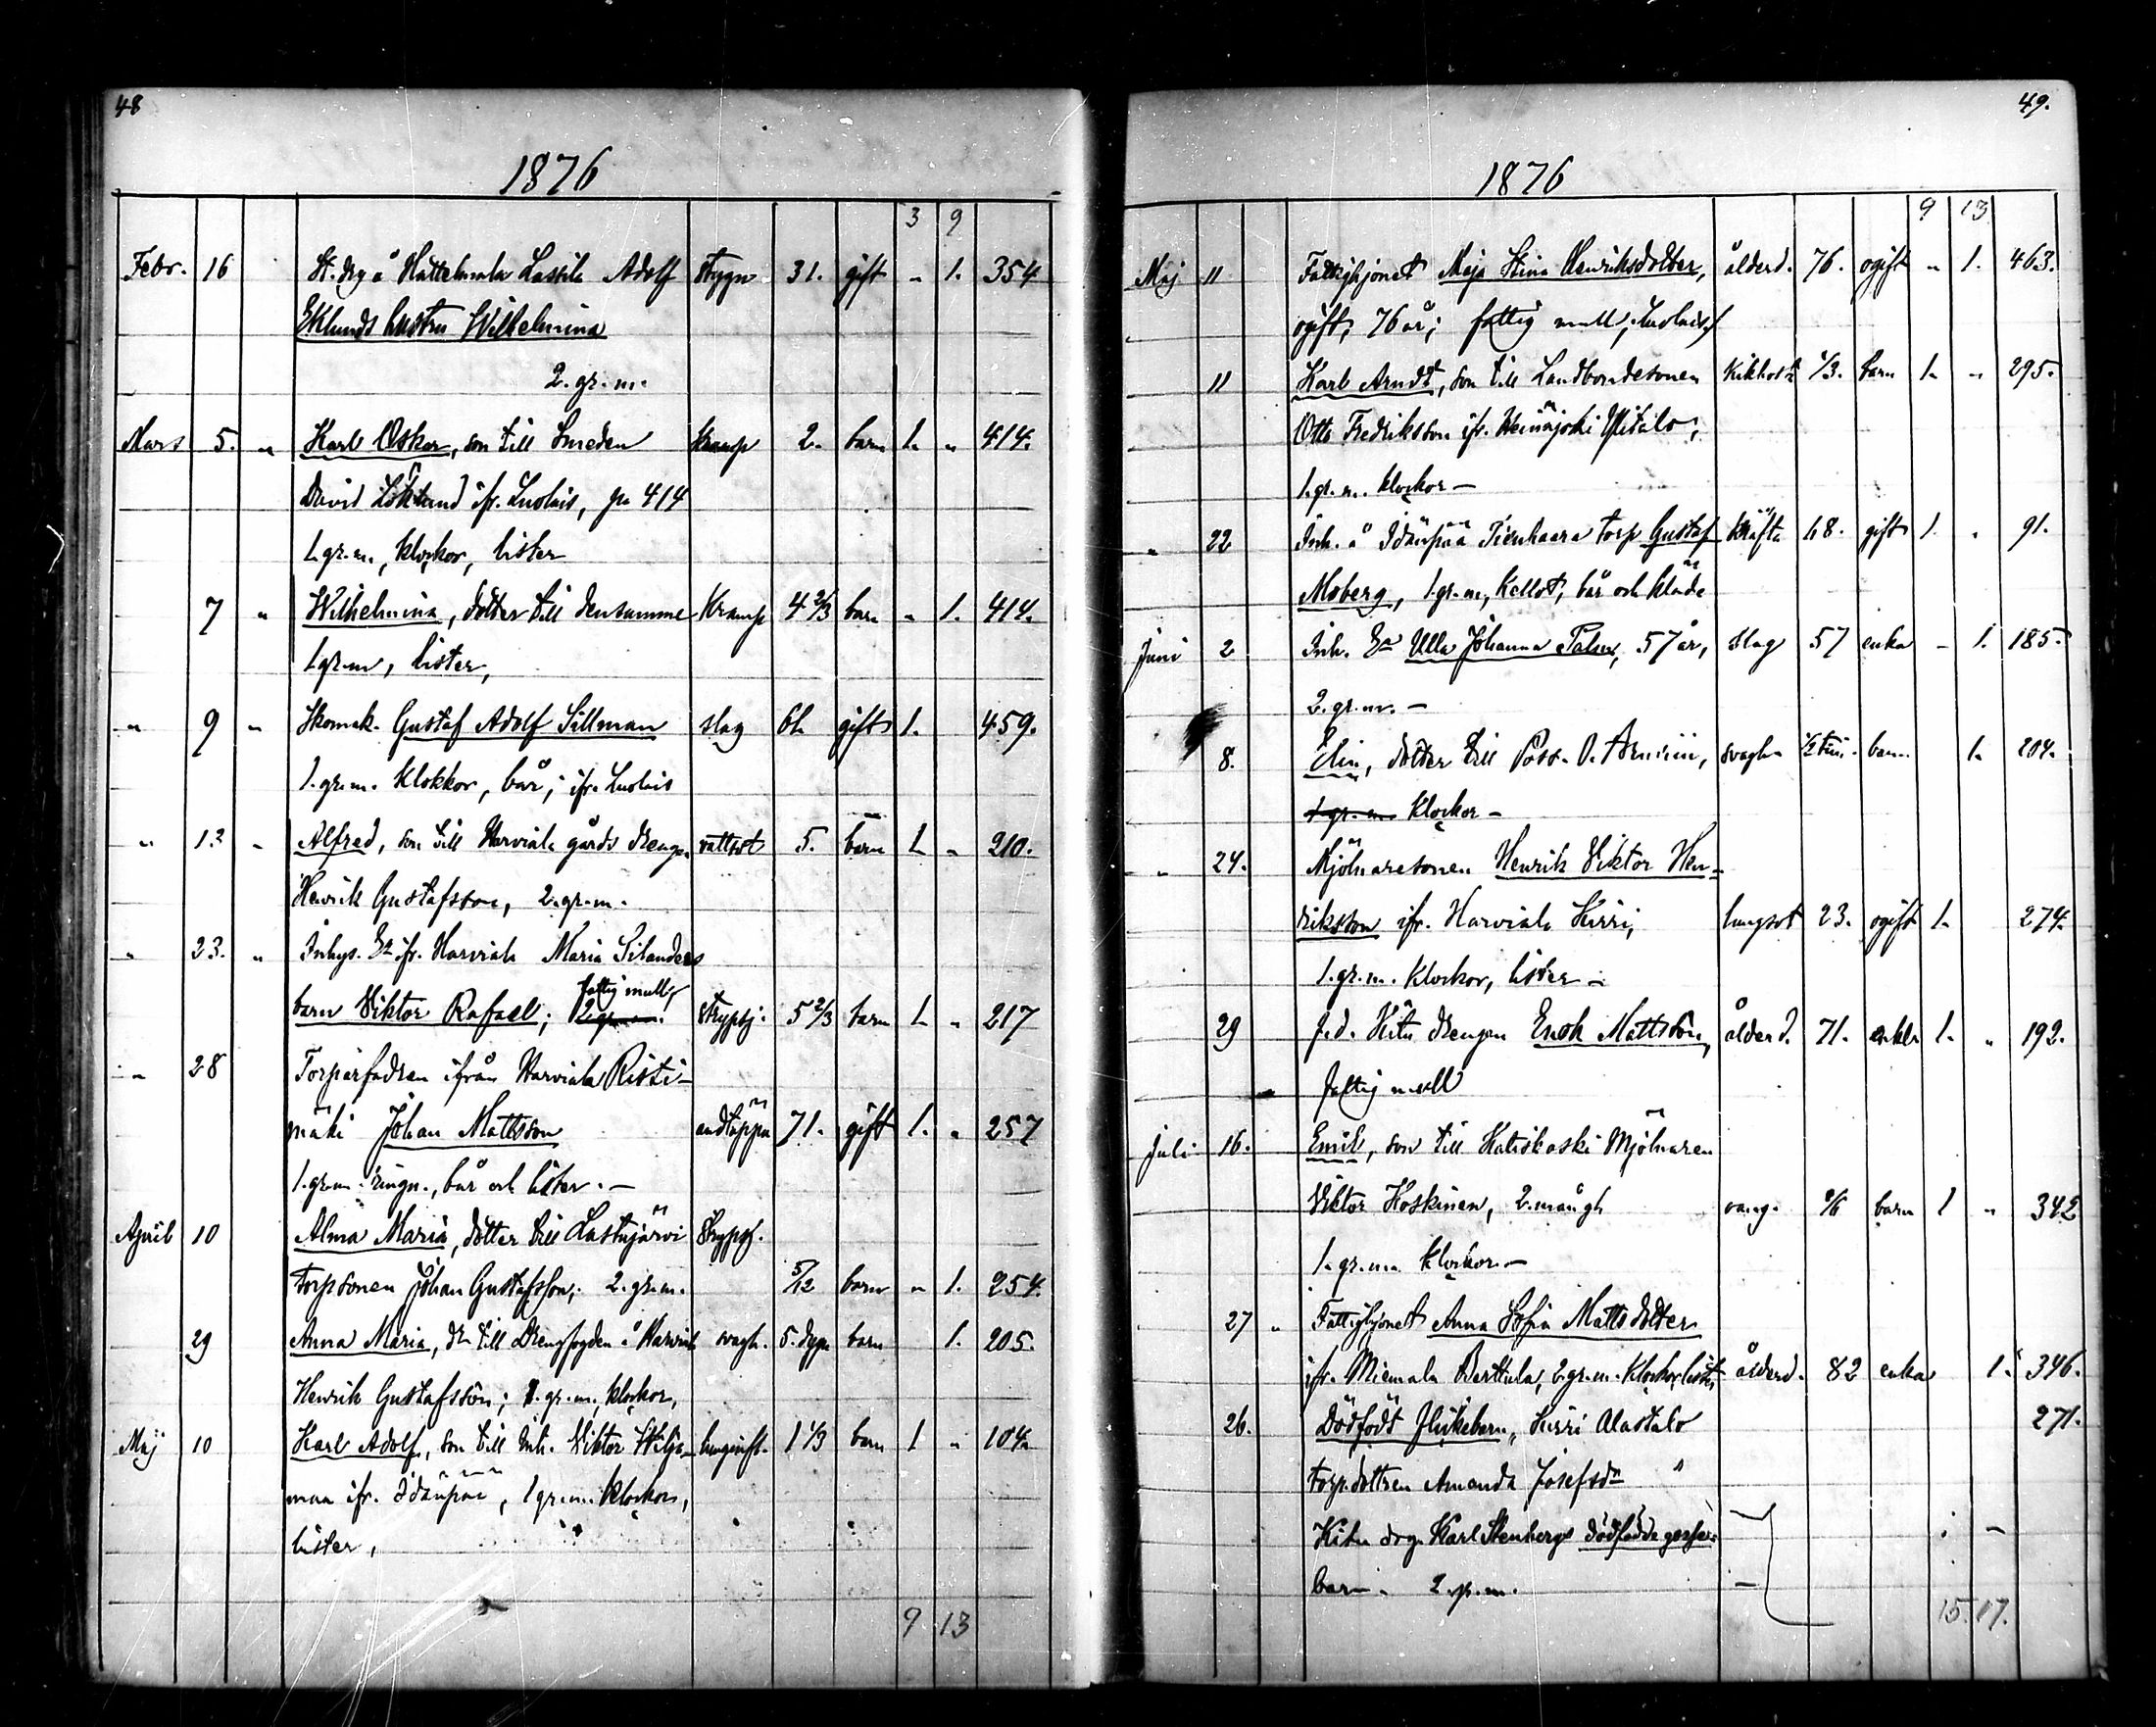 48
1876
3 9
Febr. 16 St. drg å Hattelmala Lassila Adolf 31. gift " 1. 354
Eklunds hustru Wilhelmina
2. gr. m.
Mars 5. " Karl Oskar, son till Smeden Kramp 2. barn 1. " 414.
David Löklund ifr. Luolais, pa 414
1 gr. m., klockor, lister
7 " Wilhelmina, dotter till densamme Kramp 4 2/3 barn " 1. 414.
1 gr. m, lister,
" 9 " Skomak. Gustaf Adolf Sillman slag 61. gift 1. 459.
1. gr. m. Klokkor, bår; ifr. Luolais
" 13 " Alfred, son till Harviala gårds drengen vattsot 5. barn 1 " 210.
Henrik Gustafsson, 2. gr. m.
" 23. " Inhys. Ea ifr. Harviala Maria Silanders
fattig mull
barn Viktor Rafael; 2 gr. m. Strypsj. 5 2/3 barn 1 " 217
" 28 Torparfadren ifrån Harviala Risti-
mäki Johan Mattsson andtäppa 71. gift 1. " 257
1. gr. m. ringn., bår och lister. —
April 10 Alma Maria, dotter till Lastujärvi Strypsj.
torpsonen Johan Gustafsson, 2. gr. m. 5/12 barn " 1. 254.
29 Anna Maria, dr till Drengfogden å Harviala svagh. 5. dygn barn 1. 205.
Henrik Gustafsson; 1. gr. m., klockor,
Maj 10 Karl Adolf, son till Inh. Viktor Wilja- lunginfl. 1 1/3 barn 1 " 104.
maa ifr. Idänpää, 1 gr. m. klockor,
lister,
9 13
49.
1876
9 13
Maj 11 Fattighjonet Maja Stina Henriksdotter, ålderd. 76. ogift " 1. 463.
ogift, 76 år; fattig mull, Luolais
11 Karl Arndt, son till Landbondesonen Kikhosta 1/3. barn 1. " 295.
Otto Fredriksson ifr. Heinäjoki Ylitalo;
1. gr. m. klockor —
" 22 Inh. å Idänpää Tienhaara torp Gustaf Kräfta 68. gift 1. " 91.
Moberg, 1. gr. m, bår och kläde
Juni 2 Inh. Ea Ulla Johanna Palm, 57 år, slag 57 enka " 1. 185.
2. gr. m. —
8. Elin, dotter till Poss. O. Armini, svaghet 1/2 tim. barn 1. 204.
1 gr. m. Klockor —
" 24. Mjölnaresonen Henrik Viktor Hen-
riksson ifr. Harviala Kirri, lungsot 23. ogift 1. 274.
1. gr. m. Klockor, lister —
29 f. d. Hätu drengen Enok Mattsson, ålderd. 71. enkl. 1. " 192.
fattig mull
Juli 16. Emil, son till Katiskoski Mjölnaren
Viktor Koskinen, 2. mån gl. barn 1 " 342
1. gr. m. klockor —
27 " Fattighjonet Anna Sofia Mattsdotter
ifr. Miemala Berttula, 2. gr. m. Klockor, lister ålderd. 82 enka 1. 346.
26. Dödfödt flickebarn, Kirri Alastalo 271.
torp. dottren Amanda Josefsdr "
drg. Karl Stenbergs dödfödde gosse-
barn. 2. gr. m.
15. 17.